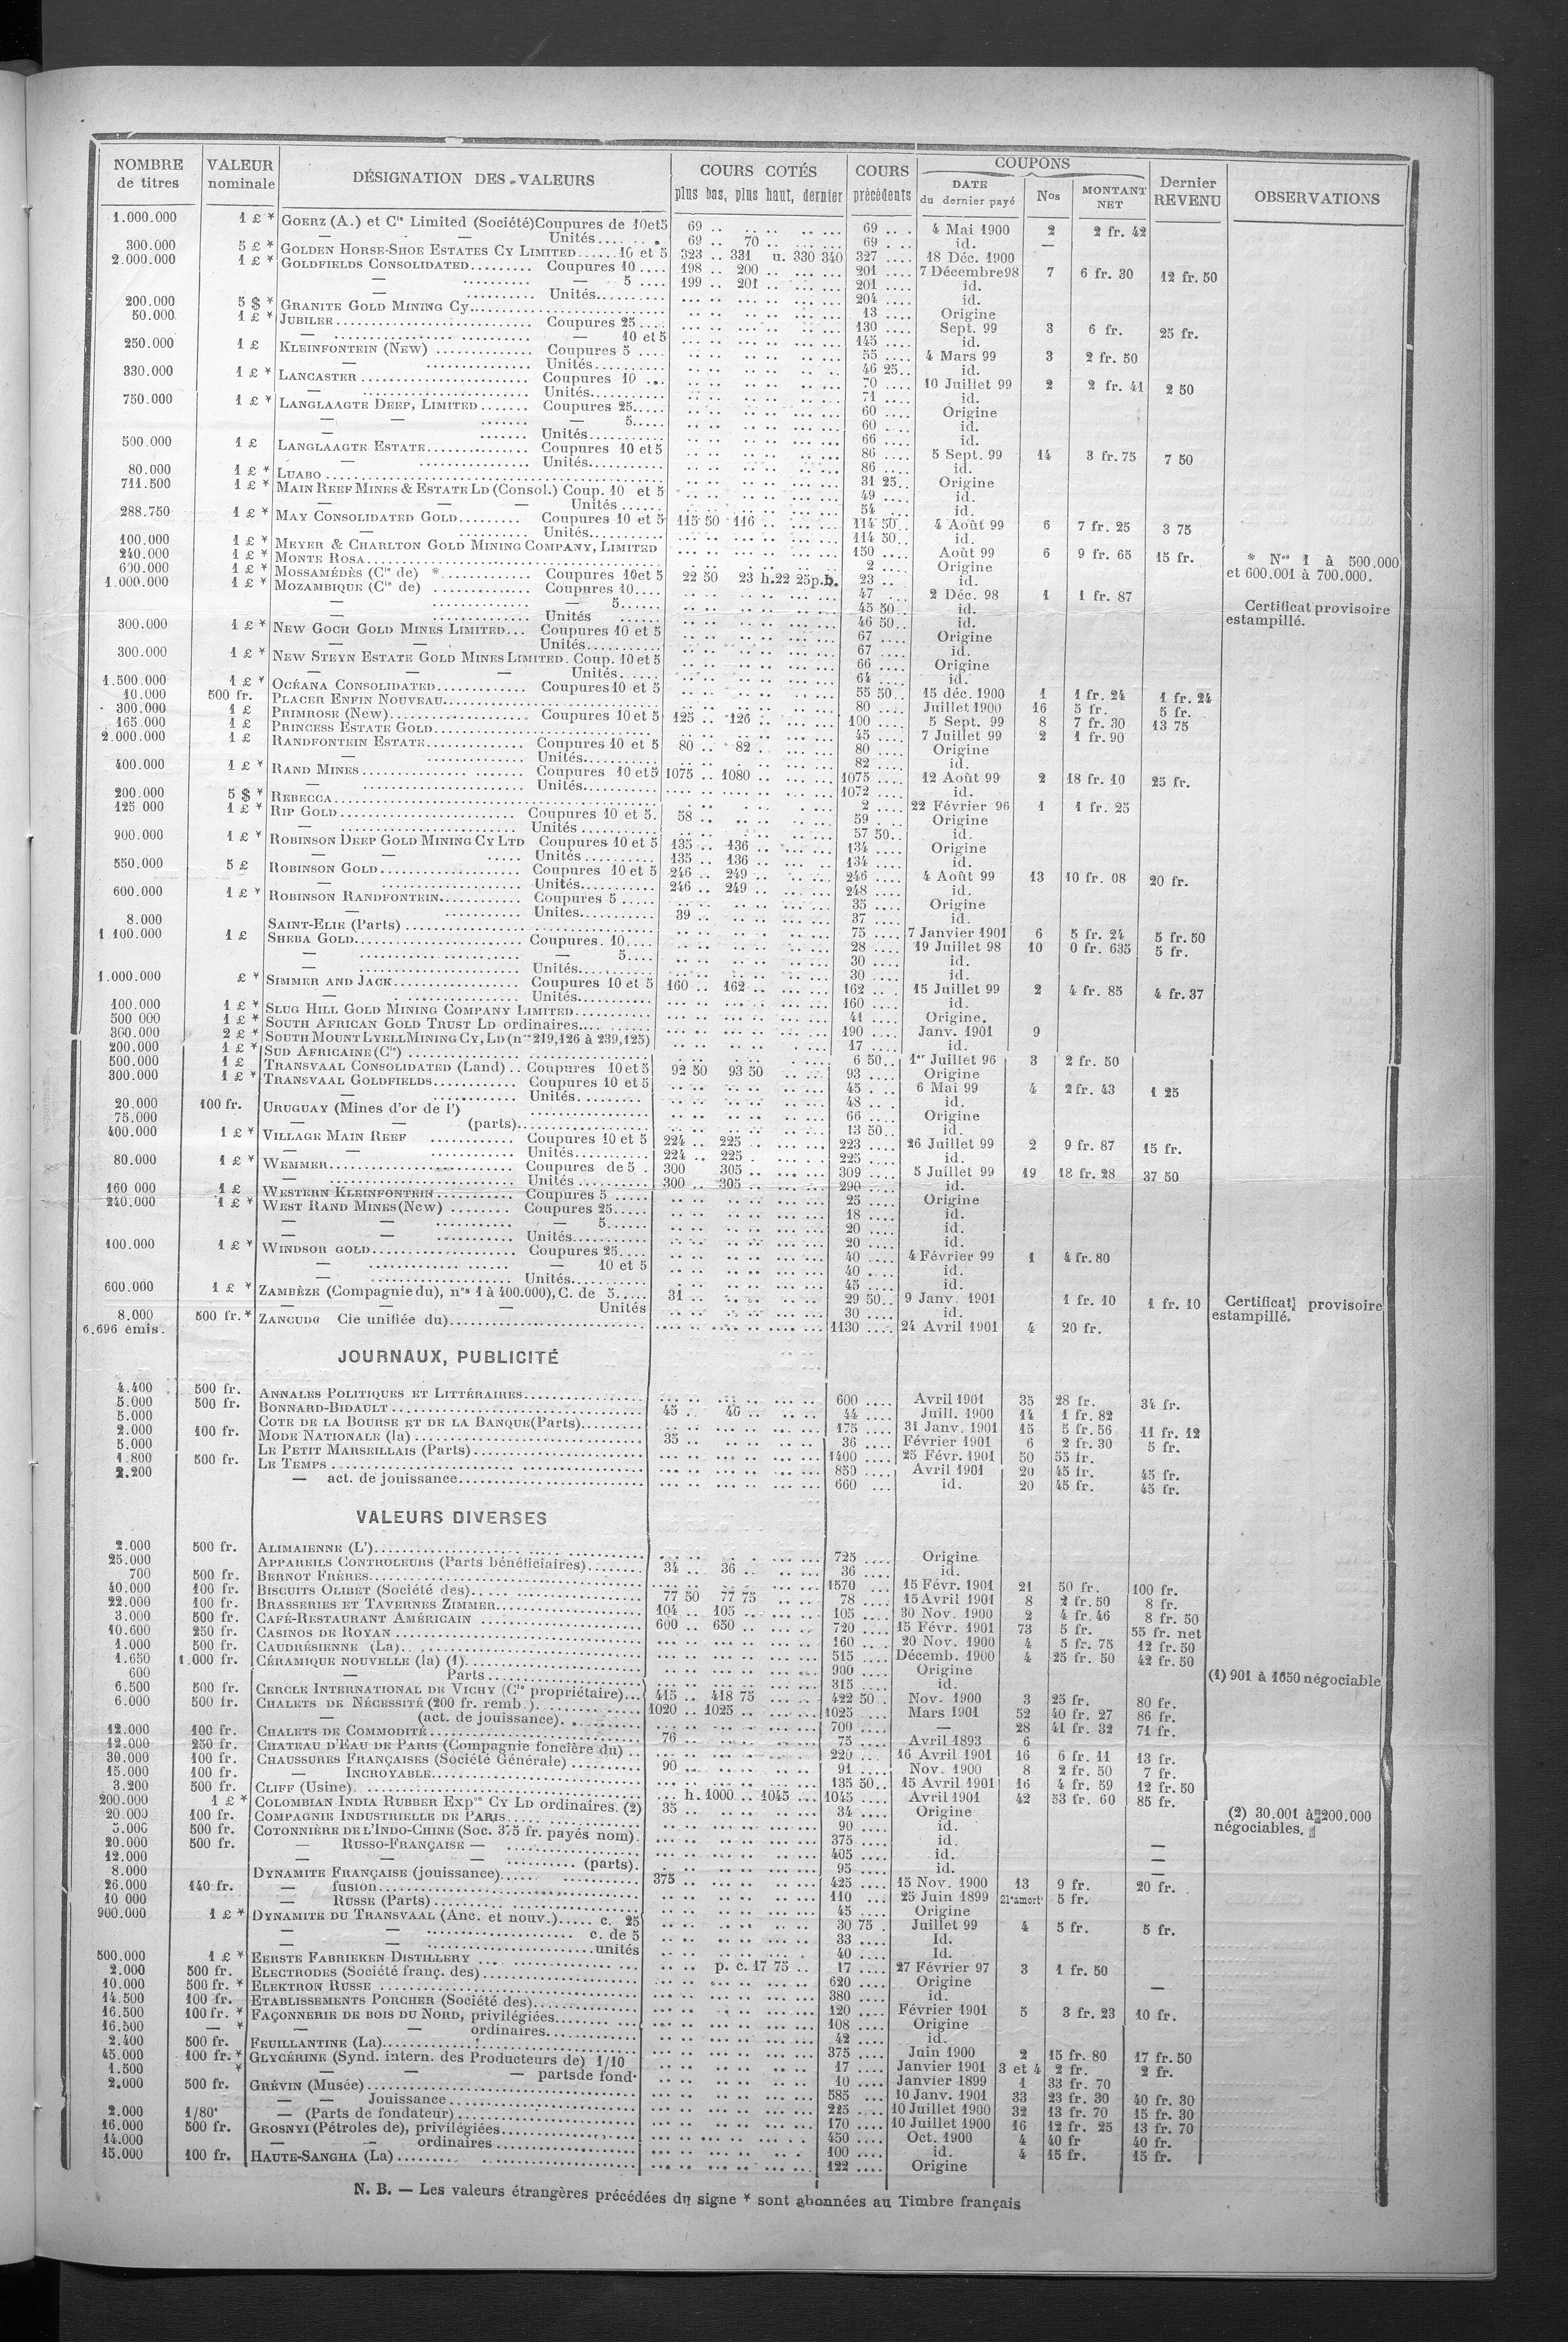 NOMBRE de titres | VALEUR nominale | DÉSIGNATION DES VALEURS | COURS COTÉS plus bas, plus haut, dernier | COURS précédents | COUPONS DATE du dernier payé | Nos | MONTANT NET | Dernier REVENU | OBSERVATIONS
1.000.000 1 £ * GOERZ (A.) et Cie Limited (Société) Coupures de 10 et 5 69 .. 69 .. 4 Mai 1900 2 2 fr. 42
— Unités 69 .. 70 .. 69 .. id. —
300.000 5 £ * GOLDEN HORSE-SHOE ESTATES CY LIMITED 10 et 5 323 .. 331 u. 330 340 327 .... 18 Déc. 1900
2.000.000 1 £ * GOLDFIELDS CONSOLIDATED Coupures 10 198 .. 200 .. 201 .... 7 Décembre 98 7 6 fr. 30 12 fr. 50
— — 5 199 .. 201 .. 201 .... id.
— Unités 204 .... id.
200.000 5 $ * GRANITE GOLD MINING Cy 13 .... Origine
50.000 1 £ * JUBILEE Coupures 25 130 .... Sept. 99 3 6 fr. 25 fr.
— — 10 et 5 145 .... id.
250.000 1 £ KLEINFONTEIN (NEW) Coupures 5 55 .... 4 Mars 99 3 2 fr. 50
— Unités 46 25.. id.
330.000 1 £ * LANCASTER Coupures 10 70 .... 10 Juillet 99 2 2 fr. 41 2 50
— Unités 71 .... id.
750.000 1 £ * LANGLAAGTE DEEP, LIMITED Coupures 25 60 .... Origine
— — — 5 60 .... id.
— Unités 66 .... id.
500.000 1 £ LANGLAAGTE ESTATE Coupures 10 et 5 86 .... 5 Sept. 99 14 3 fr. 75 7 50
— Unités 86 .... id.
80.000 1 £ * LUABO 31 25.. Origine
711.500 1 £ * MAIN REEF MINES & ESTATE LD (Consol.) Coup. 10 et 5 49 .... id.
— — — Unités 54 ... id.
288.750 1 £ * MAY CONSOLIDATED GOLD Coupures 10 et 5 115 50 116 .. 114 50.. 4 Août 99 6 7 fr. 25 3 75
— Unités 114 50.. id.
100.000 1 £ * MEYER & CHARLTON GOLD MINING COMPANY, LIMITED 150 .... Août 99 6 9 fr. 65 15 fr.
240.000 1 £ * MONTE ROSA 2 .... Origine
600.000 1 £ * MOSSAMÉDÈS (Cie de) * Coupures 10 et 5 22 50 23 h.22 25 p.b. 23 .. id. * Nos 1 à 500.000 et 600.001 à 700.000.
1.000.000 1 £ * MOZAMBIQUE (Cie de) Coupures 10 47 ... 2 Déc. 98 1 1 fr. 87 Certificat provisoire estampillé.
— — 5 45 50.. id.
— Unités 46 50.. id.
300.000 1 £ * NEW GOCH GOLD MINES LIMITED Coupures 10 et 5 67 .... Origine
— — Unités 67 .... id.
300.000 1 £ * NEW STEYN ESTATE GOLD MINES LIMITED. Coup. 10 et 5 66 .... Origine
— — — Unités 64 .... id.
1.500.000 1 £ * OCÉANA CONSOLIDATED Coupures 10 et 5 55 50.. 15 déc. 1900 1 1 fr. 24 1 fr. 24
10.000 500 fr. PLACER ENFIN NOUVEAU 80 .... Juillet 1900 16 5 fr. 5 fr.
300.000 1 £ PRIMROSE (New) Coupures 10 et 5 125 .. 126 .. 100 .... 5 Sept. 99 8 7 fr. 30 13 75
165.000 1 £ PRINCESS ESTATE GOLD 45 .... 7 Juillet 99 2 1 fr. 90
2.000.000 1 £ RANDFONTEIN ESTATE Coupures 10 et 5 80 .. 82 . 80 .... Origine
— Unités 82 .... id.
400.000 1 £ * RAND MINES Coupures 10 et 5 1075 .. 1080 .. 1075 .... 12 Août 99 2 18 fr. 10 25 fr.
— Unités 1072 .... id.
200.000 5 $ * REBECCA 2 .... 22 Février 96 1 1 fr. 25
125 000 1 £ * RIP GOLD Coupures 10 et 5. 58 .. 59 . ... Origine
— Unités 57 50.. id.
900.000 1 £ * ROBINSON DEEP GOLD MINING CY LTD Coupures 10 et 5 135 .. 136 .. 134 .... Origine
— — Unités 135 .. 136 .. 134 .... id.
550.000 5 £ ROBINSON GOLD Coupures 10 et 5 246 .. 249 .. 246 .... 4 Août 99 13 10 fr. 08 20 fr.
— Unités 246 .. 249 .. 248 .... id.
600.000 1 £ * ROBINSON RANDFONTEIN Coupures 5 35 .... Origine
— Unites 39 .. 37 .... id.
8.000 SAINT-ELIE (Parts) 75 .... 7 Janvier 1901 6 5 fr. 24 5 fr. 50
1 100.000 1 £ SHEBA GOLD Coupures. 10 28 .... 19 Juillet 98 10 0 fr. 635 5 fr.
— — 5 30 .... id.
— Unités 30 .... id.
1.000.000 £ * SIMMER AND JACK Coupures 10 et 5 160 .. 162 .. 162 .. . 15 Juillet 99 2 4 fr. 85 4 fr. 37
— Unités 160 .... id.
100.000 1 £ * SLUG HILL GOLD MINING COMPANY LIMITED 41 .... Origine.
500 000 1 £ * SOUTH AFRICAN GOLD TRUST LD ordinaires 190 .... Janv. 1901 9
360.000 2 £ * SOUTH MOUNT LYELL MINING CY, LD (nos 219,126 à 239,125) 17 .... id.
200.000 1 £ * SUD AFRICAINE (Cie) 6 50.. 1er Juillet 96 3 2 fr. 50
500.000 1 £ TRANSVAAL CONSOLIDATED (Land) Coupures 10 et 5 92 50 93 50 93 .... Origine
300.000 1 £ * TRANSVAAL GOLDFIELDS Coupures 10 et 5 45 . .. 6 Mai 99 4 2 fr. 43 1 25
— Unités 48 .. . id.
20.000 100 fr. URUGUAY (Mines d'or de l') 66 .... Origine
75.000 — — (parts) 13 50.. id.
400.000 1 £ * VILLAGE MAIN REEF Coupures 10 et 5 224 .. 225 .. 223 .... 26 Juillet 99 2 9 fr. 87 15 fr.
— — Unités 224 .. 225 . 225 .... id.
80.000 1 £ * WEMMER Coupures de 5 300 305 .. 309 .... 5 Juillet 99 19 18 fr. 28 37 50
— Unités 300 .. 305 .. 290 .... id.
160 000 1 £ WESTERN KLEINFONTEIN Coupures 5 25 .... Origine
240.000 1 £ * WEST RAND MINES (New) Coupures 25 18 .... id.
— — — 5 20 .... id.
— — Unités 20 .... id.
100.000 1 £ * WINDSOR GOLD Coupures 25 40 .... 4 Février 99 1 4 fr. 80
— — 10 et 5 40 .... id.
— Unités 45 .... id.
600.000 1 £ * ZAMBÈZE (Compagnie du), nos 1 à 400.000), C. de 5 31 .. 29 50.. 9 Janv. 1901 1 fr. 10 1 fr. 10 Certificat provisoire estampillé.
— — — Unités 30 .... id.
8.000 6.696 émis. 500 fr.* ZANCUDO Cie unifiée du) 1130 .... 24 Avril 1901 4 20 fr.
JOURNAUX, PUBLICITÉ
4.400 500 fr. ANNALES POLITIQUES ET LITTÉRAIRES 600 .... Avril 1901 35 28 fr. 34 fr.
5.000 500 fr. BONNARD-BIDAULT 45 .. 46 .. 44 .... Juill. 1900 14 1 fr. 82
5.000 COTE DE LA BOURSE ET DE LA BANQUE (Parts) 175 .... 31 Janv. 1901 15 5 fr. 56 11 fr. 12
2.000 100 fr. MODE NATIONALE (la) 35 .. 36 .... Février 1901 6 2 fr. 30 5 fr.
5.000 LE PETIT MARSEILLAIS (Parts) 1400 .... 25 Févr. 1901 50 55 fr.
1.800 500 fr. LE TEMPS 850 .... Avril 1901 20 45 fr. 45 fr.
2.200 — act. de jouissance 660 ... id. 20 45 fr. 45 fr.
VALEURS DIVERSES
2.000 500 fr. ALIMAIENNE (L') 725 .... Origine
25.000 APPAREILS CONTROLEURS (Parts bénéficiaires) 34 .. 36 .. 36 .... id.
700 500 fr. BERNOT FRÈRES 1570 ... 15 Févr. 1901 21 50 fr. 100 fr.
40.000 100 fr. BISCUITS OLIBET (Société des) 77 50 77 75 78 .... 15 Avril 1901 8 2 fr. 50 8 fr.
22.000 100 fr. BRASSERIES ET TAVERNES ZIMMER 104 .. 105 .. 105 .... 30 Nov. 1900 2 4 fr. 46 8 fr. 50
3.000 500 fr. CAFÉ-RESTAURANT AMÉRICAIN 600 .. 650 .. 720 .... 15 Févr. 1901 73 5 fr. 55 fr. net
10.600 250 fr. CASINOS DE ROYAN 160 .... 20 Nov. 1900 4 5 fr. 75 12 fr. 50
1.000 500 fr. CAUDRÉSIENNE (La) 515 .... Décemb. 1900 4 25 fr. 50 42 fr. 50
1.650 1.000 fr. CÉRAMIQUE NOUVELLE (la) (1) 900 .... Origine (1) 901 à 1650 négociable
600 — Parts 315 .... id.
6.500 500 fr. CERCLE INTERNATIONAL DE VICHY (Cie propriétaire) 415 .. 418 75 422 50.. Nov. 1900 3 25 fr. 80 fr.
6.000 500 fr. CHALETS DE NÉCESSITÉ (200 fr. remb.) 1020 .. 1025 .. 1025 .... Mars 1901 52 40 fr. 27 86 fr.
— (act. de jouissance) 700 .... — 28 41 fr. 32 71 fr.
12.000 100 fr. CHALETS DE COMMODITÉ 76 .. 75 .... Avril 1893 6
12.000 250 fr. CHATEAU D'EAU DE PARIS (Compagnie foncière du) 220 ... 16 Avril 1901 16 6 fr. 11 13 fr.
30.000 100 fr. CHAUSSURES FRANÇAISES (Société Générale) 90 .. 91 .... Nov. 1900 8 2 fr. 50 7 fr.
15.000 100 fr. — INCROYABLE 135 50.. 15 Avril 1901 16 4 fr. 59 12 fr. 50
3.200 500 fr. CLIFF (Usine) h. 1000 .. 1045 .. 1045 .... Avril 1901 42 53 fr. 60 85 fr.
200.000 1 £ * COLOMBIAN INDIA RUBBER Expon CY LD ordinaires. (2) 35 .. 34 .... Origine (2) 30.001 à 200.000 négociables.
20.000 100 fr. COMPAGNIE INDUSTRIELLE DE PARIS 90 .... id.
5.000 500 fr. COTONNIÈRE DE L'INDO-CHINE (Soc. 375 fr. payés nom). 375 .... id. —
20.000 500 fr. — RUSSO-FRANÇAISE — 405 .... id. —
12.000 — — — (parts). 95 .... id. —
8.000 DYNAMITE FRANÇAISE (jouissance) 375 .. 425 .... 15 Nov. 1900 13 9 fr. 20 fr.
26.000 140 fr. — fusion 110 ... 25 Juin 1899 21e amort 5 fr.
10 000 — RUSSE (Parts) 45 .... Origine
900.000 1 £ * DYNAMITE DU TRANSVAAL (Anc. et nouv.) c. 25 30 75 . Juillet 99 4 5 fr. 5 fr.
— — c. de 5 33 .... Id.
— — unités 40 .... Id.
500.000 1 £ * EERSTE FABRIEKEN DISTILLERY p. c. 17 75 .. 17 .... 27 Février 97 3 1 fr. 50
2.000 500 fr. ELECTRODES (Société franç. des) 620 .... Origine —
10.000 500 fr. * ELEKTRON RUSSE 380 .... id.
14.500 100 fr. ETABLISSEMENTS PORCHER (Société des) 120 .... Février 1901 5 3 fr. 23 10 fr.
16.500 100 fr. * FAÇONNERIE DE BOIS DU NORD, privilégiées 108 .... Origine
16.500 — * — — ordinaires 42 .... id.
2.400 500 fr. FEUILLANTINE (La) 375 .... Juin 1900 2 15 fr. 80 17 fr. 50
45.000 100 fr. * GLYCÉRINE (Synd. intern. des Producteurs de) 1/10 17 .... Janvier 1901 3 et 4 2 fr. 2 fr.
1.500 * — — — parts de fond. 10 .... Janvier 1899 1 33 fr. 70
2.000 500 fr. GRÉVIN (Musée) 585 ... 10 Janv. 1901 33 23 fr. 30 40 fr. 30
— Jouissance 225 .... 10 Juillet 1900 32 13 fr. 70 15 fr. 30
2.000 1/80e — (Parts de fondateur) 170 .... 10 Juillet 1900 16 12 fr. 25 13 fr. 70
16.000 500 fr. GROSNYI (Pétroles de), privilégiées 450 .... Oct. 1900 4 40 fr 40 fr.
14.000 — — ordinaires 100 .... id. 4 15 fr. 15 fr.
15.000 100 fr. HAUTE-SANGHA (La) 122 .... Origine
N. B. — Les valeurs étrangères précédées du signe * sont abonnées au Timbre français